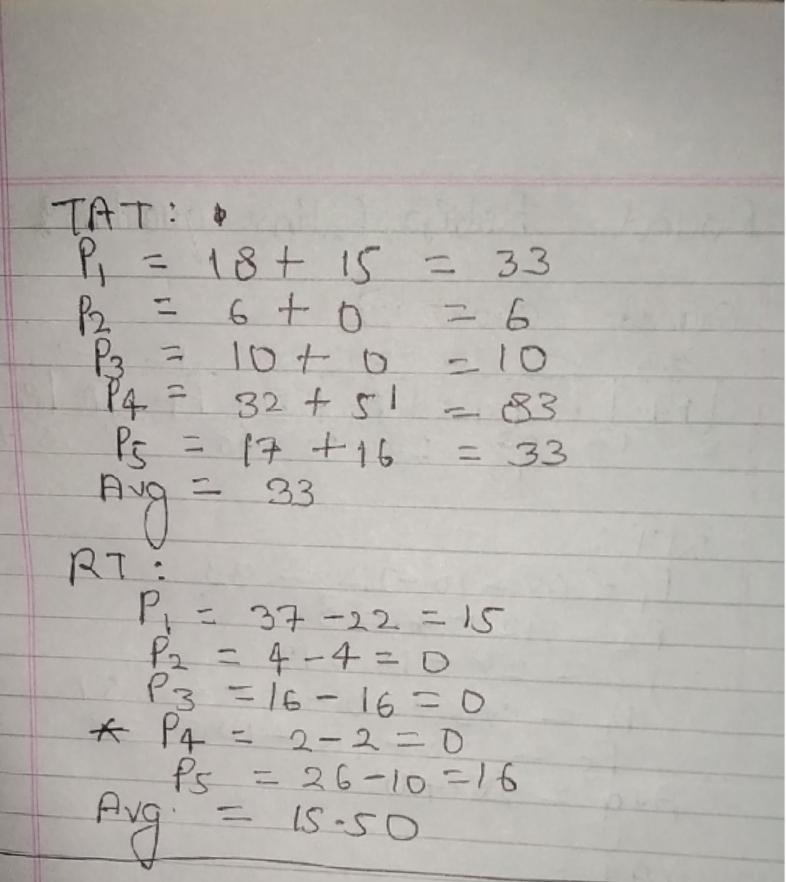 TAT:
P1 = 18 + 15 = 33
P2 = 6 + 0 = 6
P3 = 10 + 0 = 10
P4 = 32 + 51 = 83
P5 = 17 + 16 = 33
Avg = 33
RT:
P1 = 37 - 22 = 15
P2 = 4 - 4 = 0
P3 = 16 - 16 = 0
* P4 = 2 - 2 = 0
P5 = 26 - 10 = 16
Avg. = 15.50